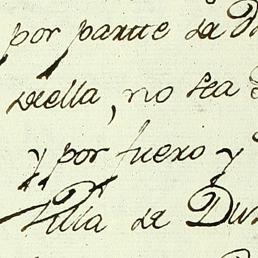 por parte de
della, no sea
y por fuero y
Villa de Du